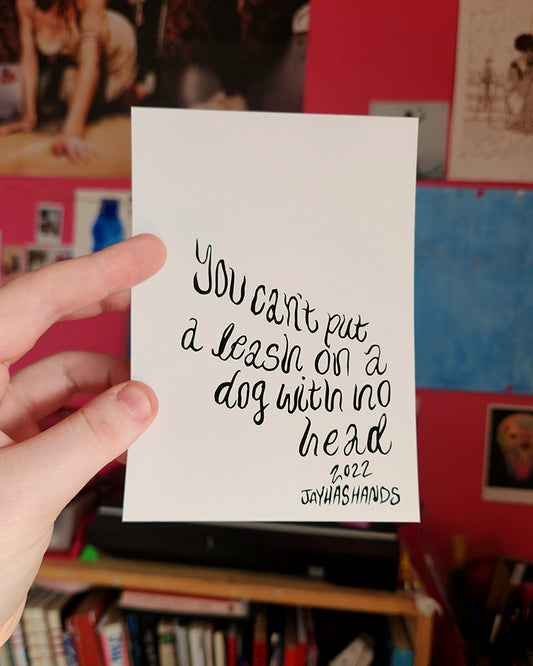 You can't put
a leash on a
dog with no
head
2022
JAYHASHANDS